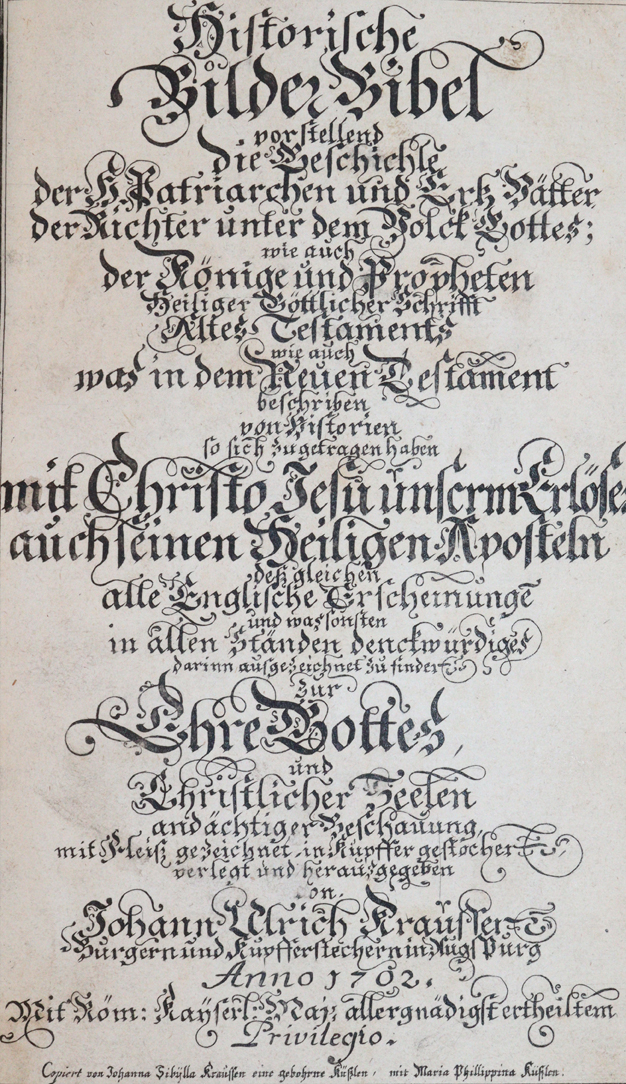 Historische
Bilder Bibel
vorstellend
die Geschichte
der H. Patriarchen und Ertz Vätter
der Richter unter dem Volck Gottes;
wie auch
der Könige und Propheten
Heiliger Göttlicher Schrifft
Altes Testaments
wie auch
was in dem Neuen Testament
beschriben
von Historien
so sich zugetragen haben
mit Christo Jesu unserm Erlöser
auch seinen Heiligen Aposteln
deß gleichen
alle Englische Erscheinungē
und was sonsten
in allen Ständen denckwürdiges
darinn aufgezeichnet zu finden
zur
Ehre Gottes,
und
Christlicher Seelen
andächtiger Beschauung,
mit Fleiß gezeichnet in Kupffer gestochen
verlegt und herausgegeben
von.
Johann Ulrich Kraussen
Burgern und Kupfferstechern in Augspurg
Anno 1702.
Mit Röm: Kayserl: Maj: allergnädigst ertheiltem
Privilegio.
Copiert von Johanna Sibÿlla Kraussen eine gebohrne Küßlen, mit Maria Phillippina Küßlen.